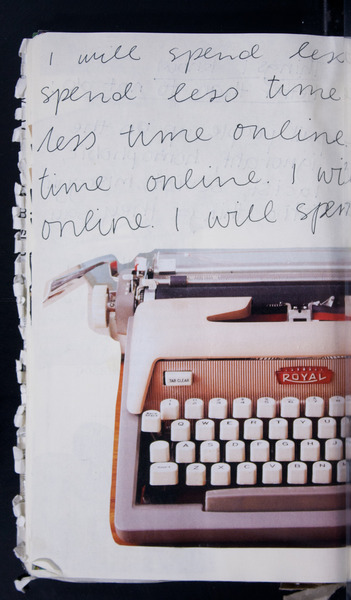 I will spend less
spend less time
less time online.
time online. I wi
online. I will spen
TAB CLEAR
ROYAL
Q W E R T Y U
A S D F G H J
Z X C V B N